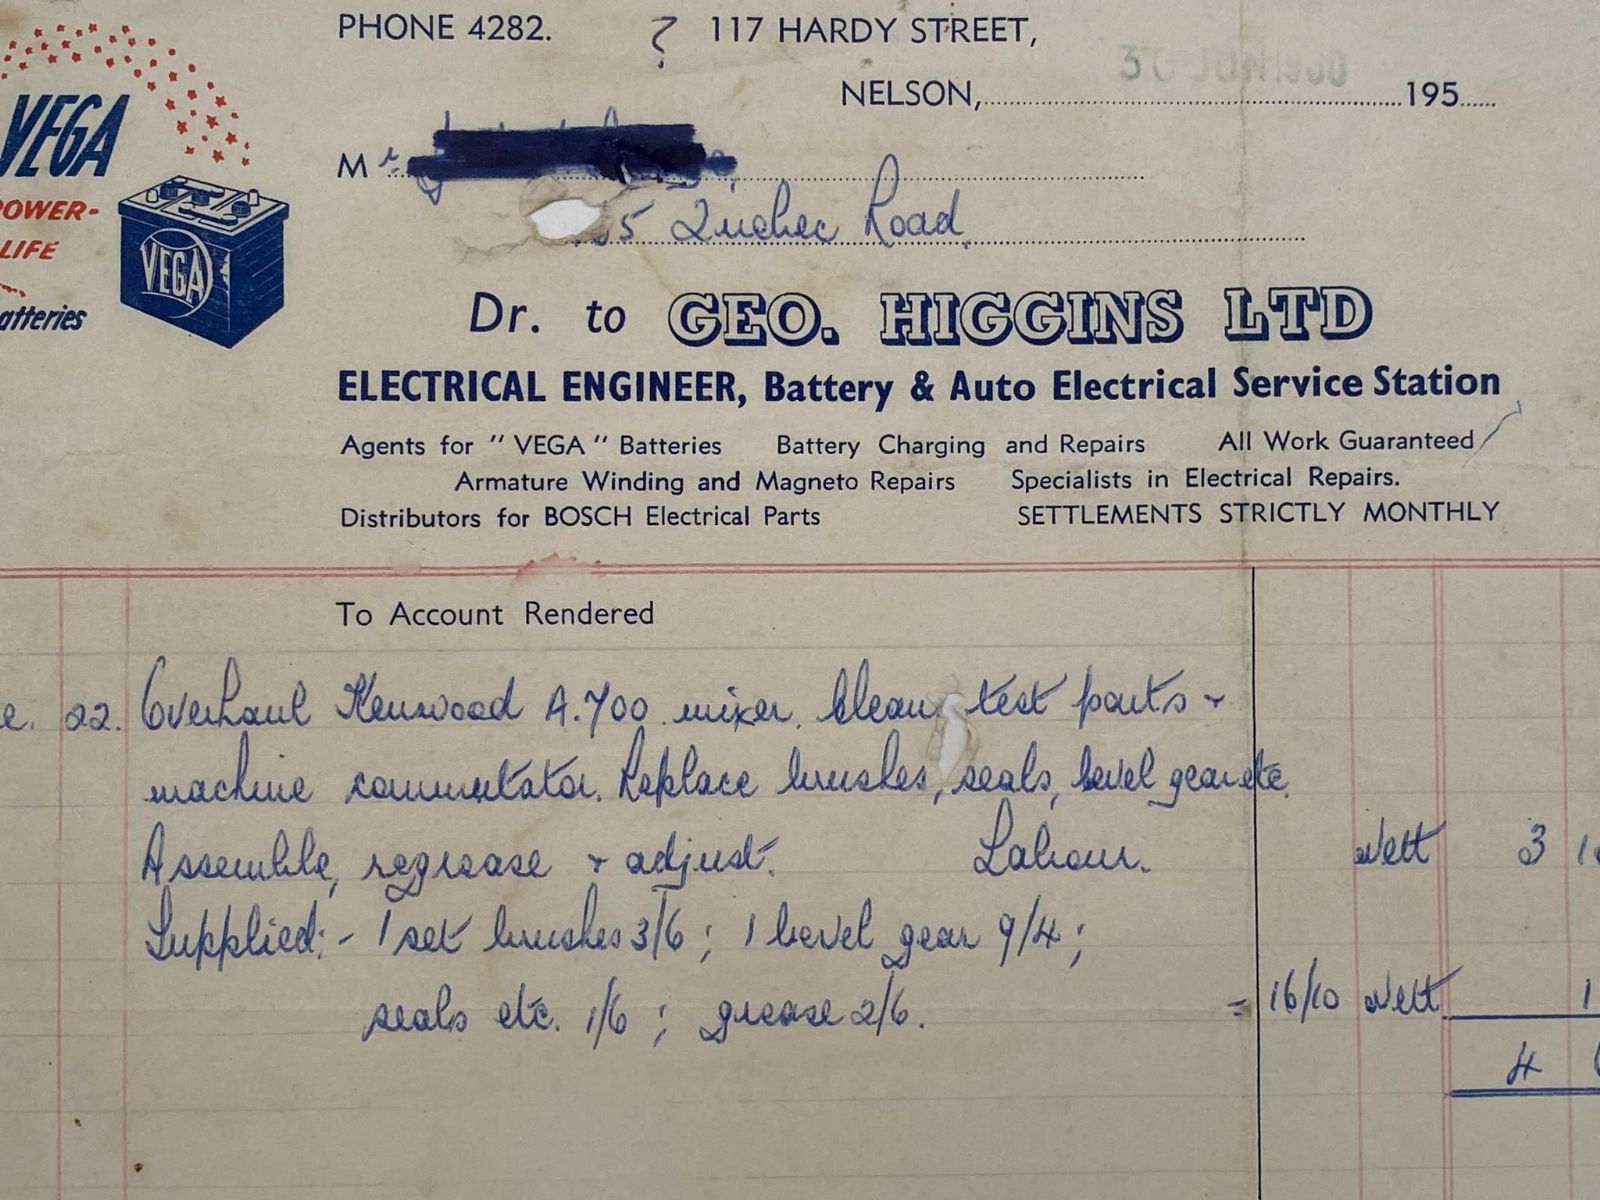 PHONE 4282. ? 117 HARDY STREET,
NELSON, 195
VEGA
POWER-
LIFE
VEGA
atteries
Mr.
5 Quebec Road.
Dr. to GEO. HIGGINS LTD
ELECTRICAL ENGINEER, Battery & Auto Electrical Service Station
Agents for "VEGA" Batteries Battery Charging and Repairs All Work Guaranteed
Armature Winding and Magneto Repairs Specialists in Electrical Repairs.
Distributors for BOSCH Electrical Parts SETTLEMENTS STRICTLY MONTHLY
To Account Rendered
e. 22. Overhaul Kenwood A.700 mixer. Clean, test parts +
machine commutator. Replace brushes, seals, bevel gear etc.
Assemble, regrease + adjust. Labour. Nett 3
Supplied:- 1 set brushes 3/6; 1 bevel gear 9/4;
seals etc. 1/6; grease 2/6. = 16/10 Nett. 1
4